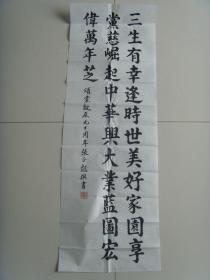 三生有幸逢時世美好家園享
黨慈崛起中華興大業藍圖宏
偉萬年芝
頌黨誕辰九十周年張